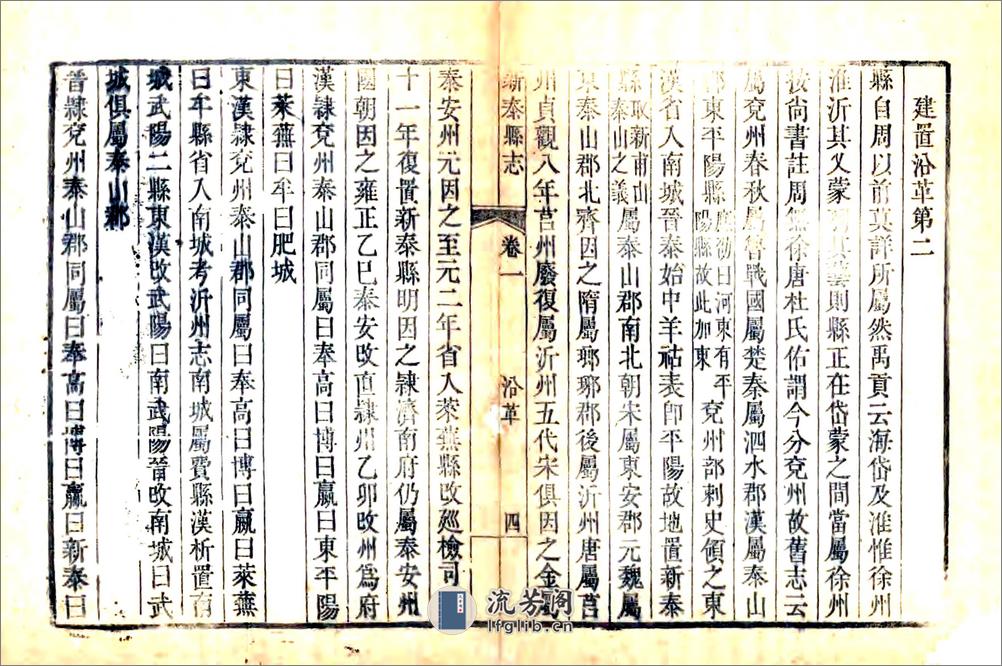 建置沿革第二
縣自周以前莫詳所屬然禹貢云海岱及淮惟徐州
淮沂其乂蒙羽其藝則縣正在岱蒙之間當屬徐州
尚書註周無徐唐杜氏佑謂今分兗州故舊志云
屬兗州春秋屬魯戰國屬楚秦屬泗水郡漢屬泰山
郡東平陽縣應劭曰河東有平陽縣故此加東兗州部刺史領之東
漢省入南城晉泰始中羊祜表即平陽故地置新泰
縣取新甫山泰山之義屬泰山郡南北朝宋屬東安郡元魏屬
東泰山郡北齊因之隋屬瑯琊郡後屬沂州唐屬莒
州貞觀八年莒州廢復屬沂州五代宋俱因之金屬
新泰縣志 卷一 沿革 四
泰安州元因之至元二年省入萊蕪縣改廵檢司
十一年復置新泰縣明因之隷濟南府仍屬泰安州
國朝因之雍正乙巳泰安改直隷州乙卯改州爲府
漢隷兗州泰山郡同屬曰奉高曰博曰嬴曰東平陽
曰萊蕪曰牟曰肥城
東漢隷兗州泰山郡同屬曰奉高曰博曰嬴曰萊蕪
曰牟縣省入南城考沂州志南城屬費縣漢析置南
城武陽二縣東漢改武陽曰南武陽晉改南城曰武
城俱屬泰山郡
晉隷兗州泰山郡同屬曰奉高曰博曰嬴曰新泰曰
流芳阁
lfglib.cn